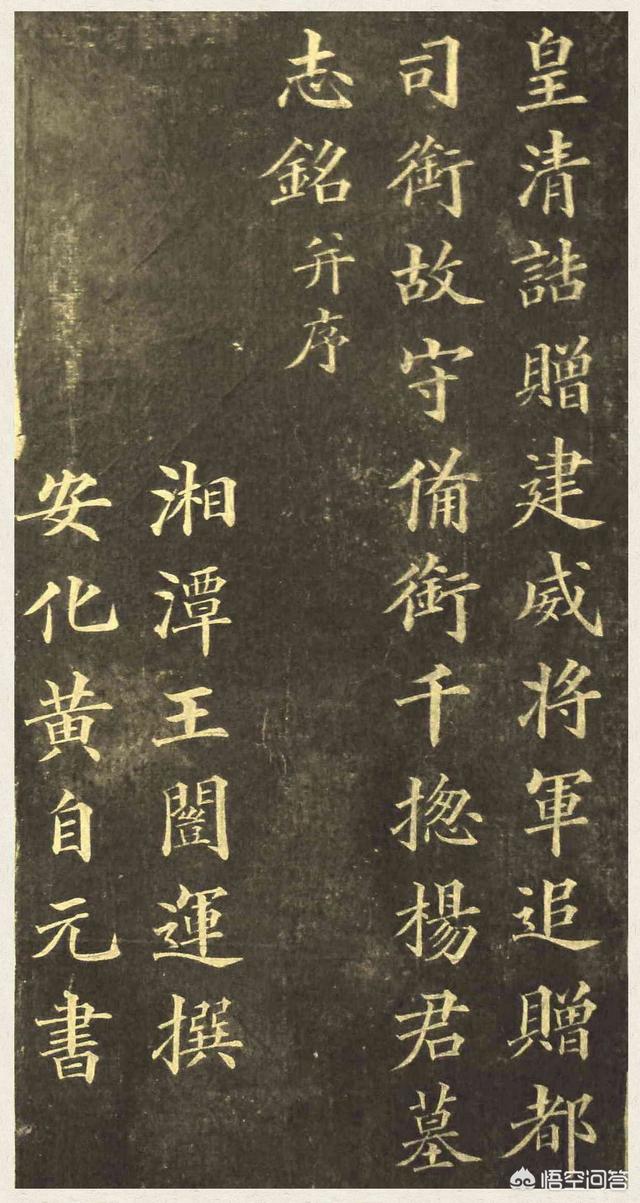 皇清誥贈建威将軍追贈都
司銜故守備銜千揔楊君墓
志銘并序
湘潭王闓運撰
安化黄自元書
悟空问答